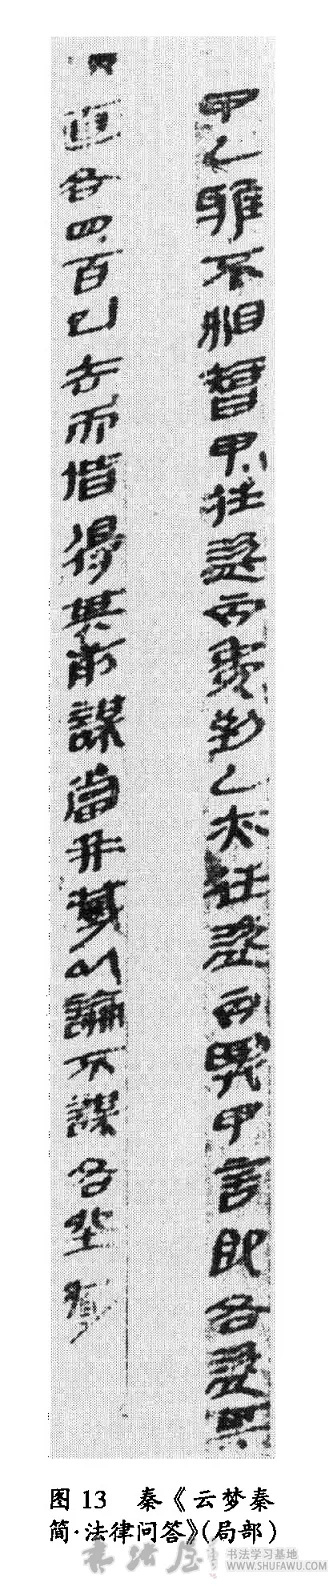 甲乙雅不相智甲往盜丙毚到乙亦往盜丙與甲言即各盜其
直各四百已去而偕得其前謀當并臧以論不謀各坐臧
图13 秦《云梦秦
简·法律问答》(局部)
书法屋 书法学习基地
WWW.SHUFAWU.COM